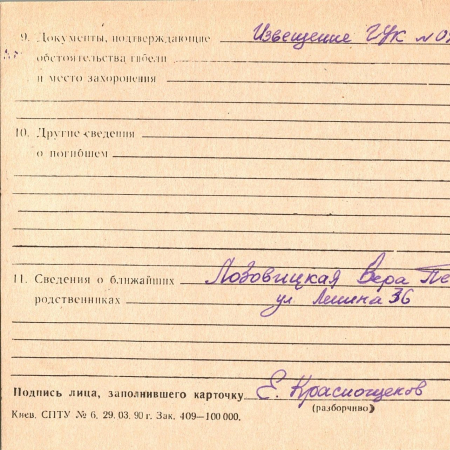 9. Документы, подтверждающие Извещение ГУК №
обстоятельства гибели
и место захоронения
10. Другие сведения
о погибшем
11. Сведения о ближайших Лозовицкая Вера
родственниках ул Ленина 36
Подпись лица, заполнившего карточку Е. Краснощеков
(разборчиво)
Киев. СПТУ № 6. 29. 03. 90 г. Зак. 409—100 000.